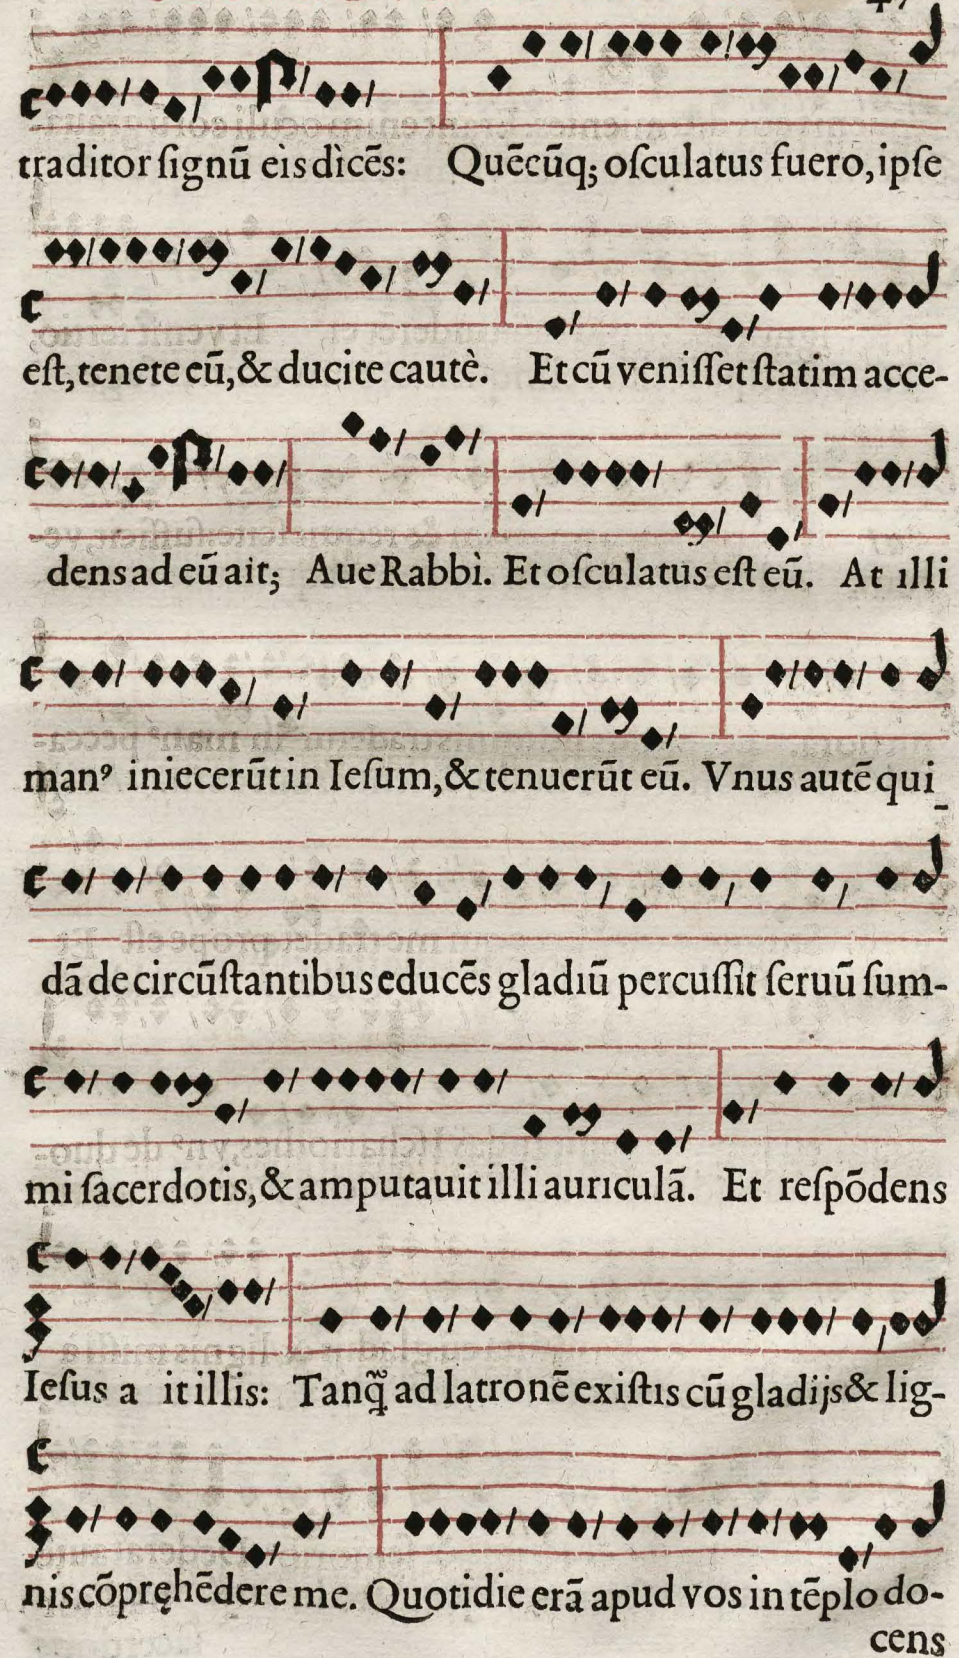 traditor ſignū eìs dìcēs: Quēcūq; oſculatus fuero, ipſe
eſt, tenete eū, & ducite cautè. Et cū veniſſet ſtatim acce-
dens ad eū ait; Aue Rabbì. Et oſculatus eſt eū. At illi
manꝰ iniecerūt in Ieſum, & tenuerūt eū. Vnus autē qui
dā de circūſtantibus educēs gladiū percuſſit ſeruū ſum-
mi ſacerdotis, & amputauit illi auriculā. Et reſpōdens
Ieſus a it illis: Tanq̃ ad latronē exiſtis cū gladijs & lig-
nis cōpręhēdere me. Quotidie erā apud vos in tēplo do-
cens